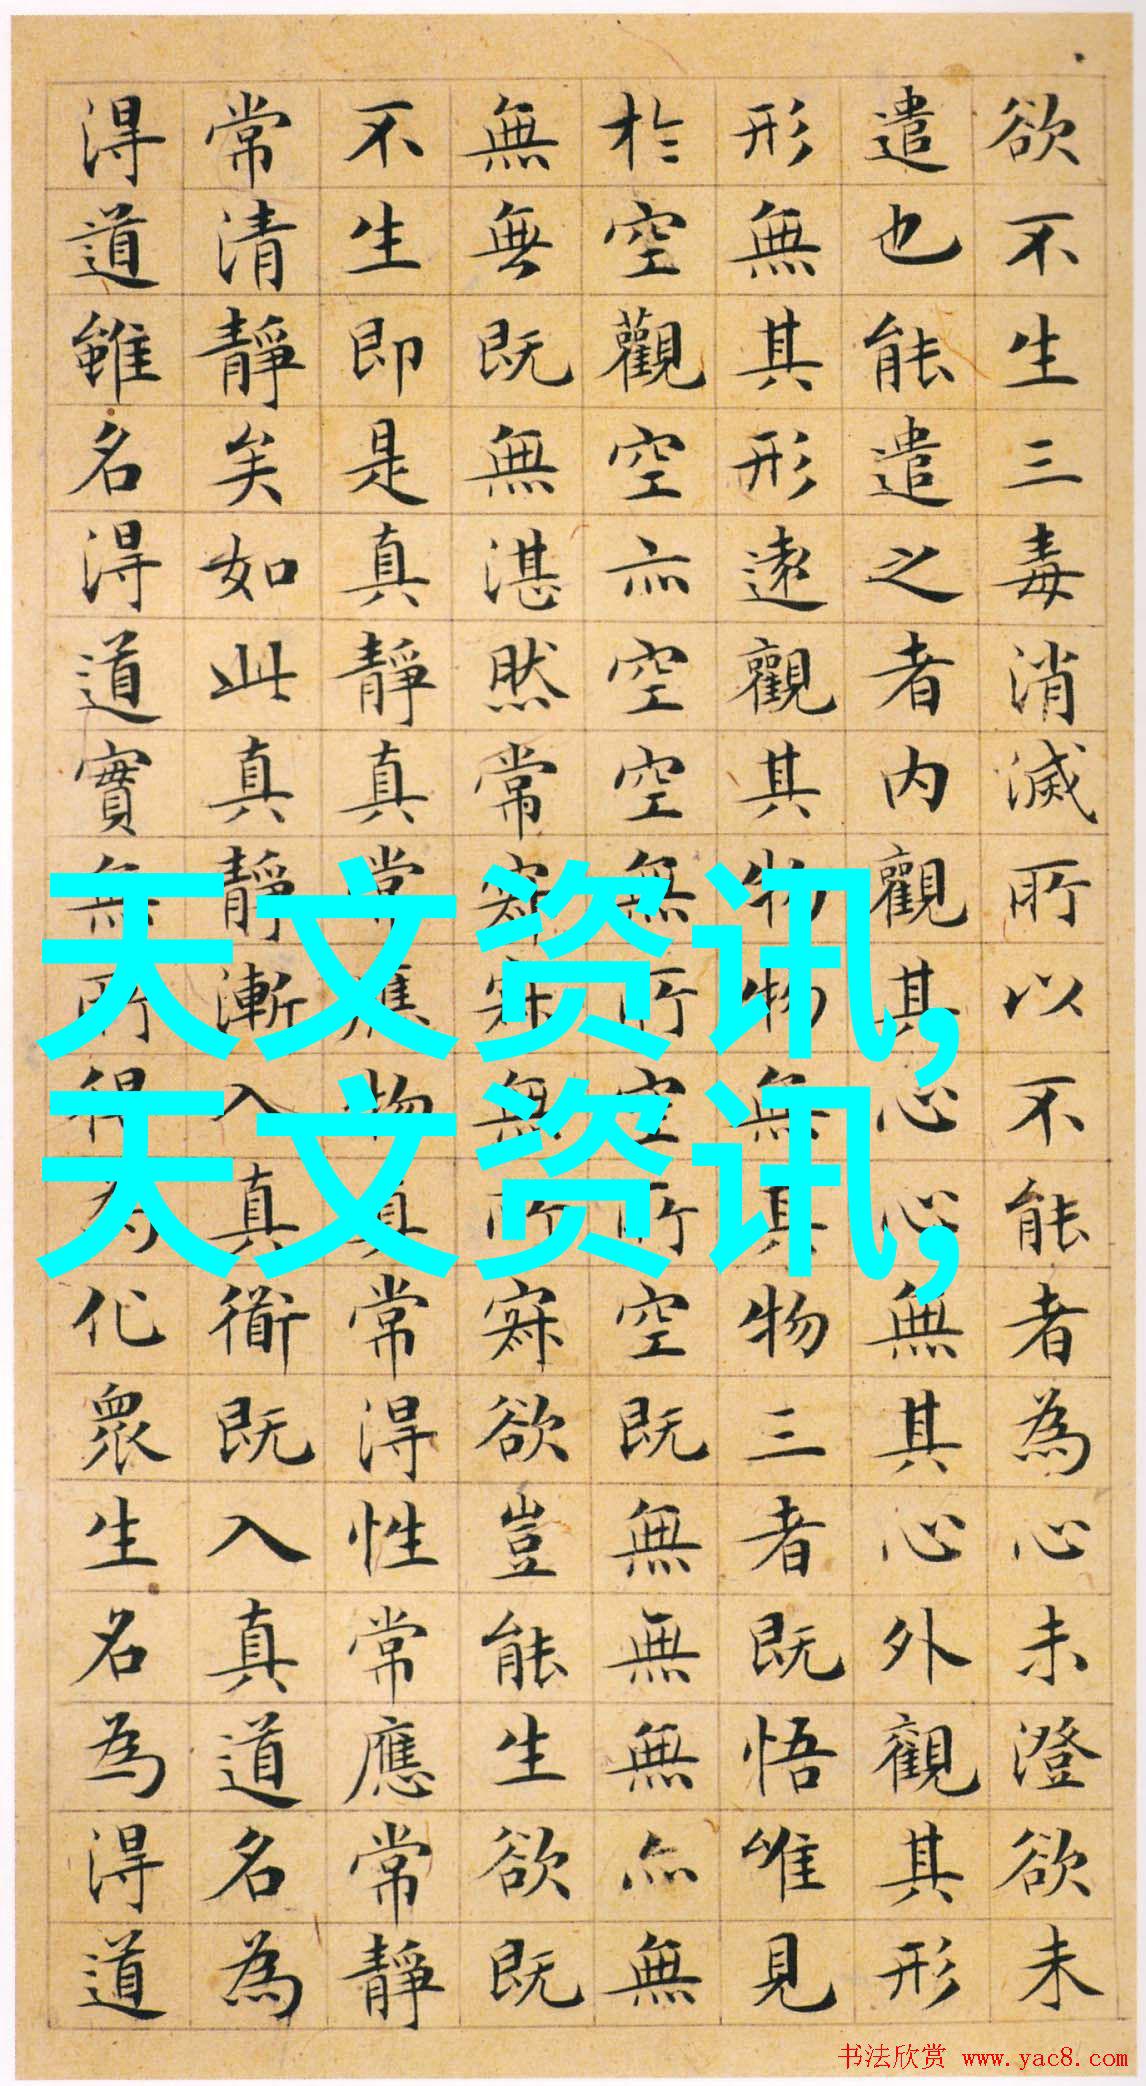 欲不生三毒消滅所以不能者為心未澄欲未
遣也能遣之者内觀其心心無其心外觀其形
形無其形遠觀其物物無其物三者既悟唯見
於空觀空亦空空無所空所空既無無無亦無
無無既無湛然常寂寂無所寂欲豈能生欲既
不生即是真靜真常應物真常得性常應常靜
常清靜矣如此真靜漸入真衜既入真道名為
得道雖名得道實無所得為化眾生名為得道
天文资讯,
天文资讯,
书法欣赏 www.yac8.com